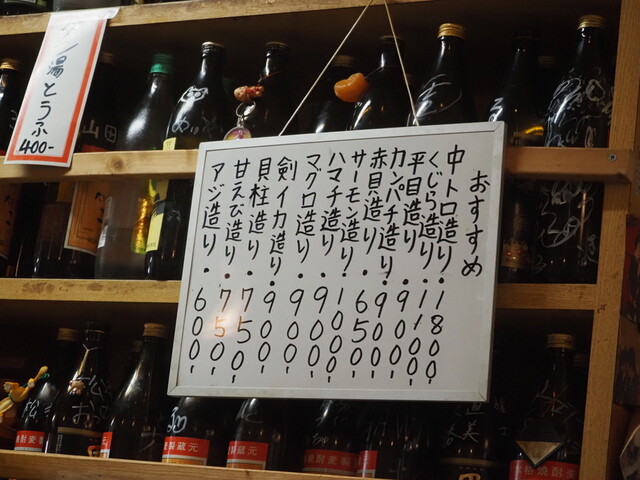 おすすめ
中トロ造り・1800,-
くじら造り・1100,-
平目造り・900,-
カンパチ造り・900,-
赤貝造り・650,-
サーモン造り・1000,-
ハマチ造り・900,-
マグロ造り・900,-
剣イカ造り・900,-
貝柱造り・750,-
甘えび造り・750,-
アジ造り・600,-
湯とうふ
400-
山田
製蔵元